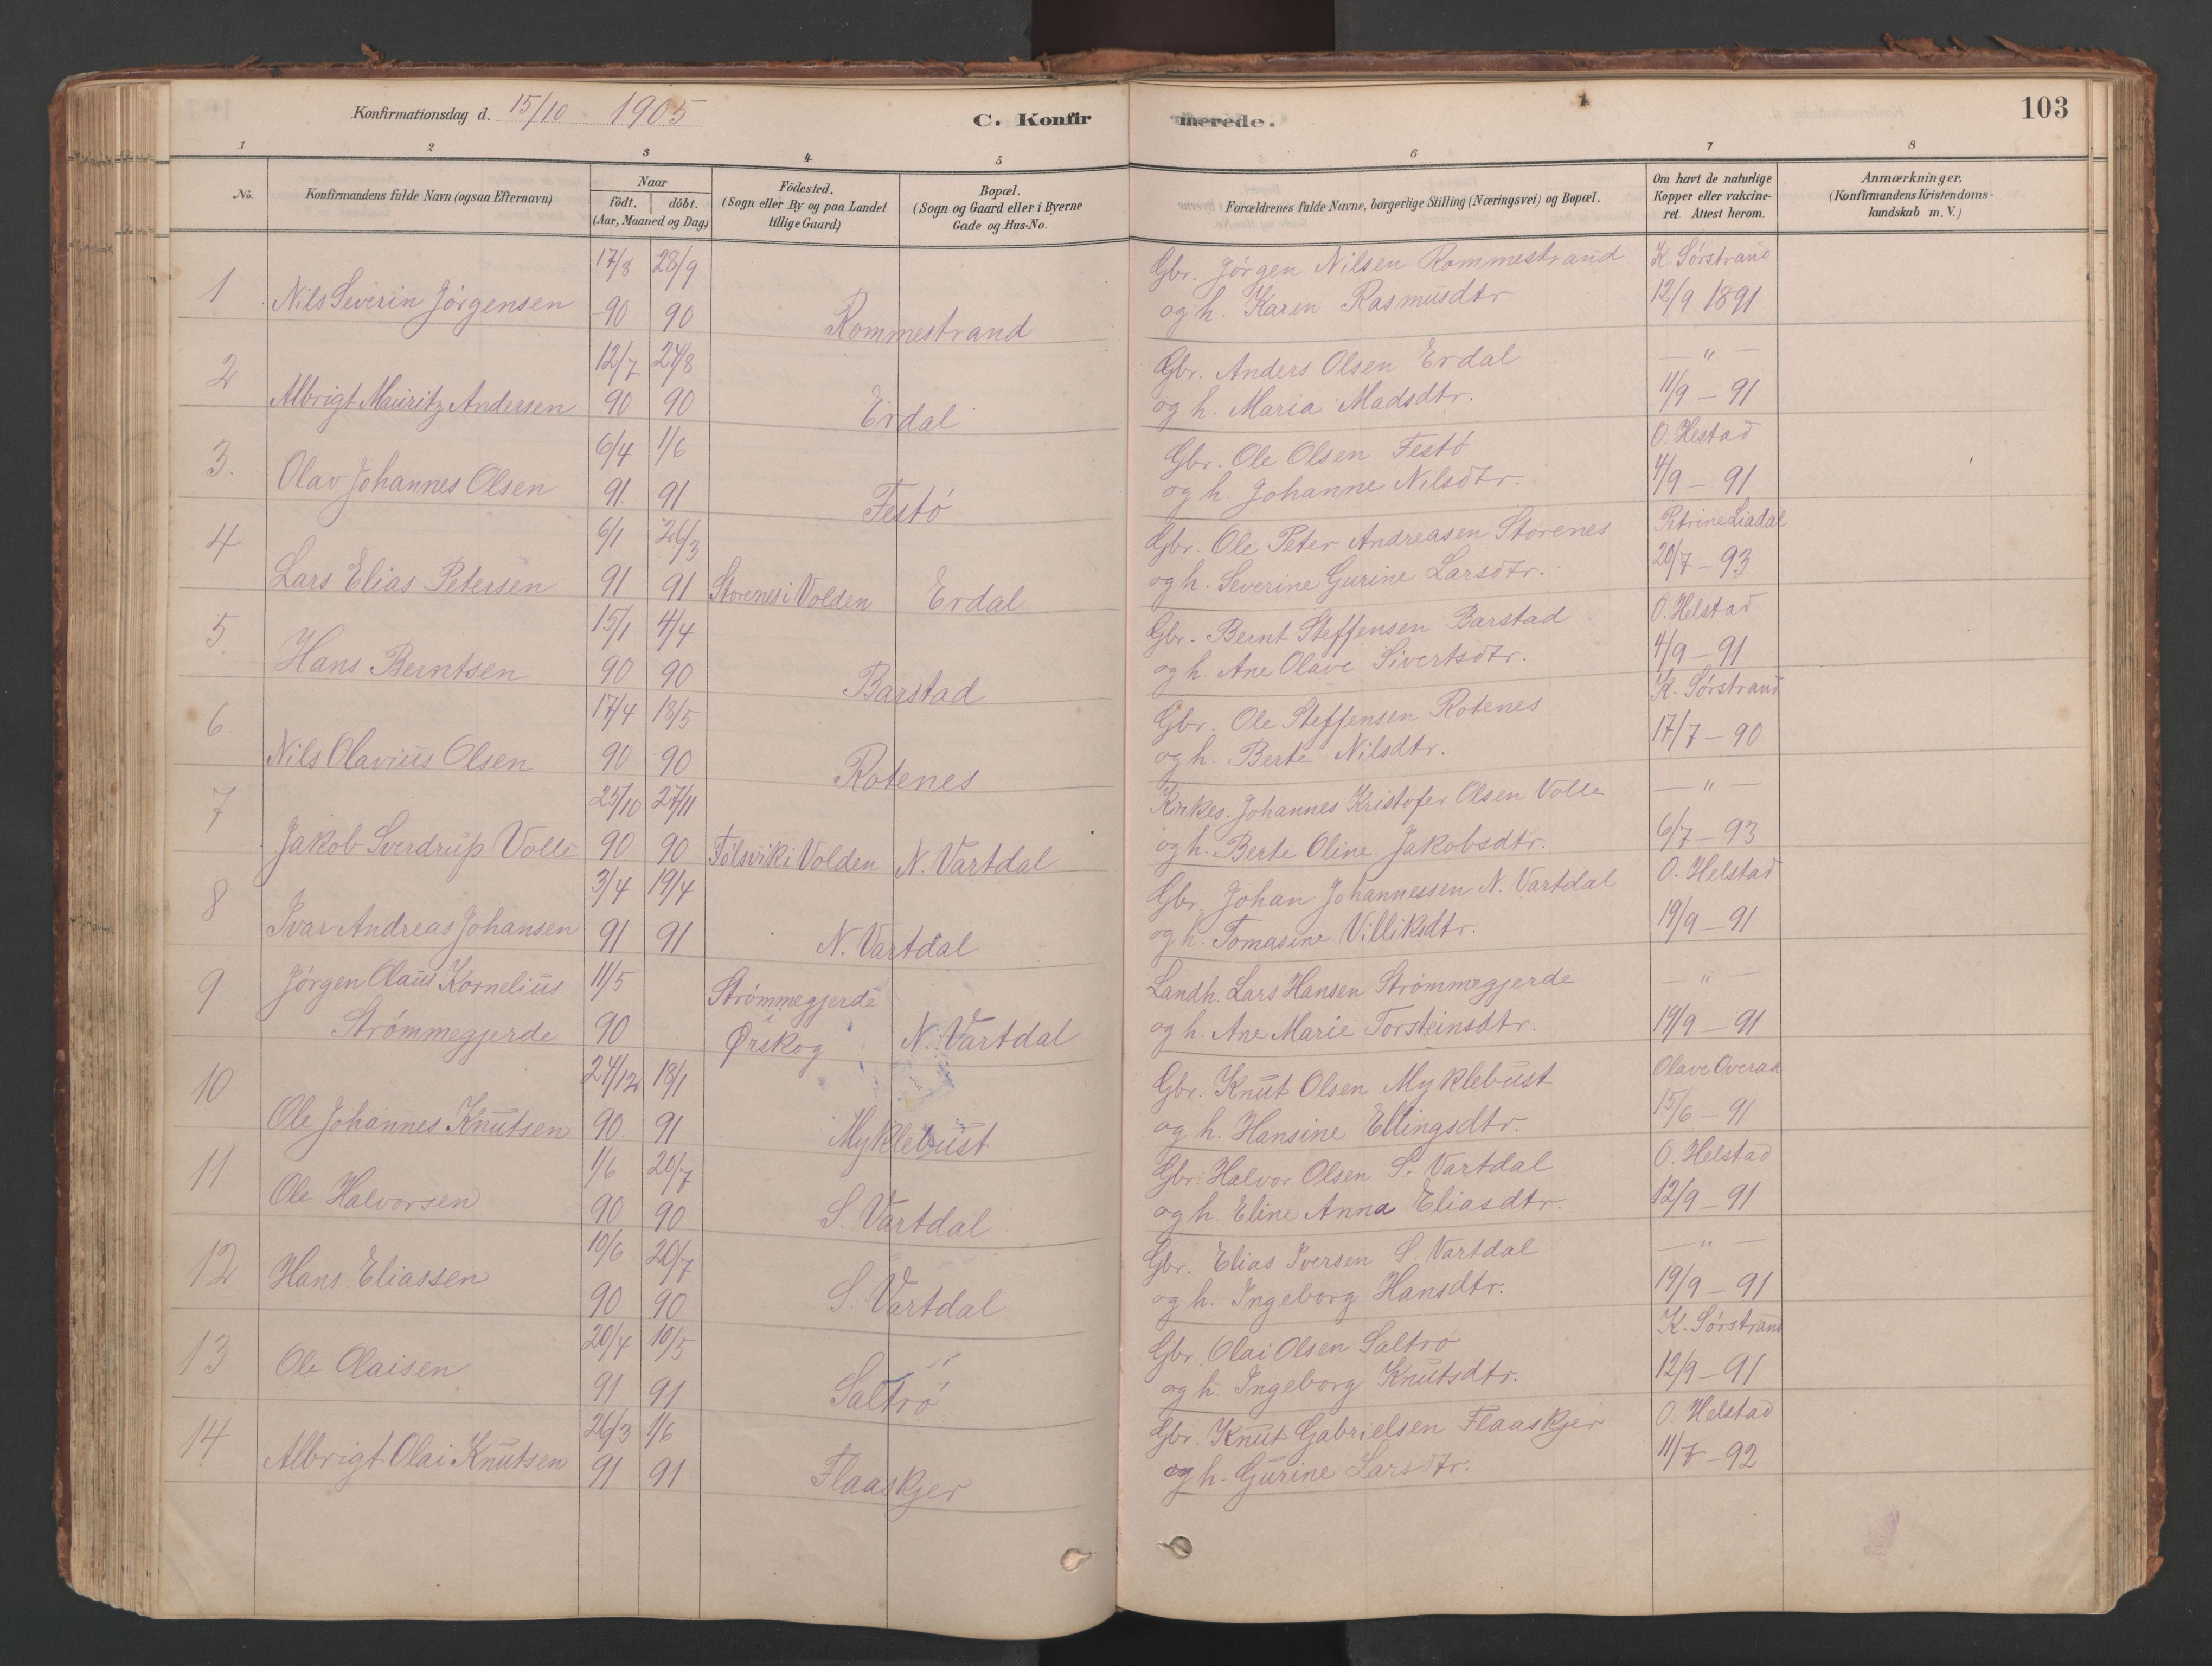 Konfirmationsdag d. 15/10 1905
C. Konfirmerede.
103
1 2 3 4 5 6 7 8
No.
Konfirmandens fulde Navn (ogsaa Efternavn)
Naar
födt. döbt.
(Aar, Maaned og Dag)
Födested.
(Sogn eller By og paa Landet
tillige Gaard)
Bopæl.
(Sogn og Gaard eller i Byerne
Gade og Hus-No.
Forældrenes fulde Navne, borgerlige Stilling (Næringsvei) og Bopæl.
Om havt de naturlige
Kopper eller vakcine-
ret. Attest herom.
Anmærkninger.
(Konfirmandens Kristendoms-
kundskab m. V.)
17/8 28/9 Gbr. Jörgen Nilsen Rommestrand K. Sörstrand
1 Nils Severin Jörgensen 90 90 Rommestrand og h. Karen Rasmusdtr 12/9 1891
12/7 24/8 Gbr. Anders Olsen Erdal — " —
2 Albrigt Mauritz Andersen 90 90 Erdal og h. Maria Madsdtr. 11/9 – 91
6/4 1/6 Gbr. Ole Olsen Festö O. Hestad
3. Olav Johannes Olsen 91 91 Festö og h. Johanne Nilsdtr. 4/9 – 91
6/1 26/3 Gbr. Ole Peter Andreasen Storenes Petrine Liadal
4 Lars Elias Petersen 91 91 Storenes i Volden Erdal og h. Severine Gurine Larsdtr. 20/7 – 93
15/1 4/4 Gbr. Bernt Steffensen Barstad O. Helstad
5. Hans Berntsen 90 90 Barstad og h. Ane Olave Sivertsdtr. 4/9 – 91
17/4 18/5 Gbr. Ole Steffensen Rotenes K. Sörstrand
6 Nils Olavius Olsen 90 90 Rotenes og h. Berte Nilsdtr. 17/7 – 90
25/10 27/11 Kirkes. Johannes Kristofer Olsen Volle — " —
7 Jakob Sverdrup Volle 90 90 Folsvik i Volden N. Vartdal og h. Berte Oline Jakobsdtr. 6/7 – 93
3/4 19/4 Gbr. Johan Johannessen N. Vartdal O. Helstad
8 Ivar Andreas Johansen 91 91 N. Vartdal og h. Tomasine Villiksdtr. 19/9 – 91
9 Jörgen Olaus Kornelius 11/5 Strömmegjerde Landh. Lars Hansen Strömmegjerde — " —
Strömmegjerde 90 Ørskog N. Vartdal og h. Ane Marie Torsteinsdtr. 19/9 – 91
24/12 18/1 Gbr. Knut Olsen Myklebust Olave Overaa
10 Ole Johannes Knutsen 90 91 Myklebust og h. Hansine Ellingsdtr. 15/6 – 91
1/6 20/7 Gbr. Halvor Olsen S. Vartdal O. Helstad
11 Ole Halvorsen 90 90 S. Vartdal og h. Eline Anna Eliasdtr. 12/9 – 91
10/6 20/7 Gbr. Elias Iversen S. Vartdal — " —
12 Hans Eliassen 90 90 S. Vartdal og h. Ingeborg Hansdtr. 19/9 – 91
20/4 10/5 Gbr. Olai Olsen Saltrö K. Sörstrand
13 Ole Olaisen 91 91 Saltrö og h. Ingeborg Knutsdtr. 12/9 – 91
26/3 1/6 Gbr. Knut Gabrielsen Flaaskjer O. Helstad
14 Albrigt Olai Knutsen 91 91 Flaaskjer og h. Gurine Larsdtr. 11/7 – 92